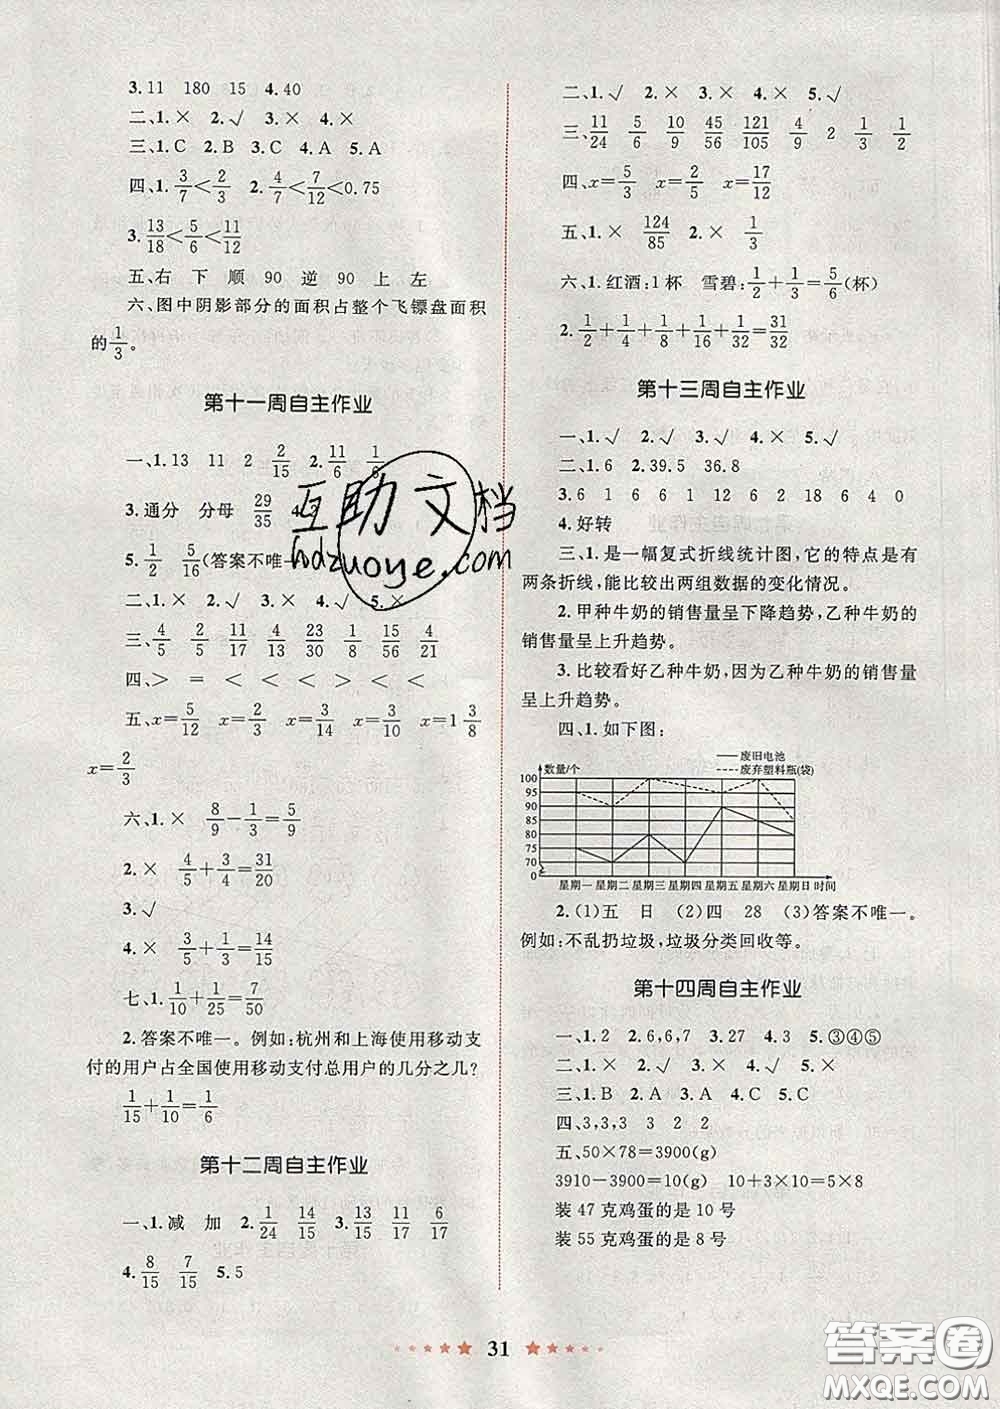 3.11 180 15 4.40
二、1.× 2.√ 3.× 4.×
三、1.C 2.B 3.C 4.A 5.A
四、1. 3/7<2/3 2. 4/7<7/12<0.75
3. 13/18<5/6<11/12
五、右 下 顺 90 逆 90 上 左
六、图中阴影部分的面积占整个飞镖盘面积
的1/3。
第十一周自主作业
一、1.13 11 2 2/15 2. 11/6 1/6
3.通分 分母 29/35
5. 1/2 5/16(答案不唯一
二、1.× 2.√ 3.× 4.√ 5.×
三、4/5 2/5 11/17 4/30 23/30 1/8 15/56 4/21
四、> = < < < > < <
五、x=5/12 x=2/3 x=3/14 x=2/3 x=1 3/8
x=2/3
六、1.× 8/9-1/3=5/9
2.× 4/5+3/4=31/20
3.√
4.× 3/5+1/3=14/15
七、1. 1/10+1/25=7/50
2.答案不唯一。例如:杭州和上海使用移动支
付的用户占全国使用移动支付总用户的几分之几?
1/15+1/10=1/6
第十二周自主作业
一、1.减 加 2. 1/24 14/15 3. 13/12 11/15 6/17
4. 8/15 7/15 5.5
二、1.√ 2.× 3.× 4.× 5.√
三、11/24 5/6 10/9 45/56 121/105 4/9 2 1/3 1/2
四、x=5/3 x=2/5 x=17/12
五、1.× 124/85 2.× 1/3
六、1.红酒:1杯 雪碧:1/2+1/3=5/6(杯)
2. 1/2+1/4+1/8+1/16+1/32=31/32
第十三周自主作业
一、1.√ 2.√ 3.√ 4.× 5.√
二、1.6 2.39.5 36.8
3.6 1 6 6 1 12 6 2 18 6 4 0
4.好转
三、1.是一幅复式折线统计图,它的特点是有
两条折线,能比较出两组数据的变化情况。
2.甲种牛奶的销售量呈下降趋势,乙种牛奶的
销售量呈上升趋势。
3.比较看好乙种牛奶,因为乙种牛奶的销售量
呈上升趋势。
四、1.如下图:
废旧电池
数量/个 废弃塑料瓶(袋)
100
95
90
85
80
75
70
0
星期一 星期二 星期三 星期四 星期五 星期六 星期日 时间
2.(1)五 日 (2)四 28 (3)答案不唯一。
例如:不乱扔垃圾,垃圾分类回收等。
第十四周自主作业
一、1.2 2.6,6,7 3.27 4.3 5.③④⑤
二、1.√ 2.√ 3.× 4.√
三、1.B 2.A 3.A 4.C 5.C
四、3,3,3 3 2 2
五、50×78=3900(g)
3910-3900=10(g) 10+3×10=5×8
装47克鸡蛋的是10号
装55克鸡蛋的是8号
31
互助文档
hdzuoye.com
答案圈
MXQE.COM